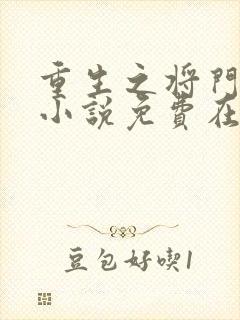 重生之将門
小說免費在
豆包好喫1